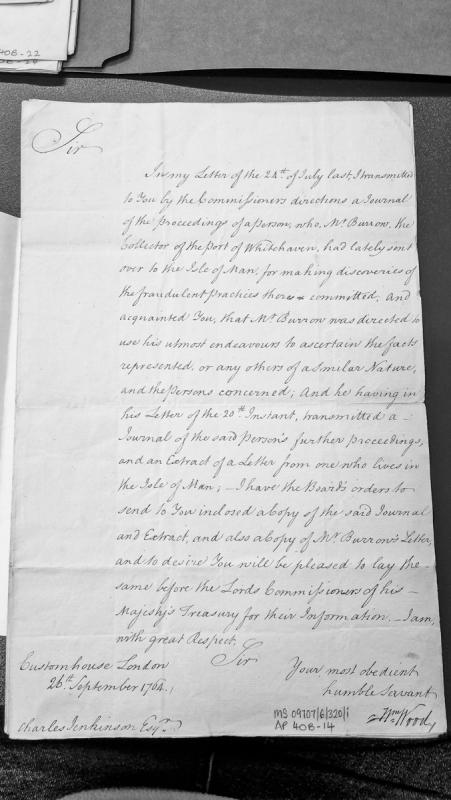 40B-22
Sir
In my Letter of the 24th. of July last, I transmitted
to You by the Commissioners directions a Journal
of the proceedings of a person, who, Mr. Burrow, the
Collector of the port of Whitehaven, had lately sent
over to the Isle of Man, for making discoveries of
the fraudulent practices there committed; And
acquainted You, that Mr. Burrow was directed to
use his utmost endeavours to ascertain the facts
represented, or any others of a similar Nature,
and the persons concerned; And he having in
his Letter of the 20th. Instant, transmitted a -
Journal of the said person's further proceedings,
and an Extract of a Letter from one who lives in
the Isle of Man; - I have the Board's orders to
send to You inclosed a Copy of the said Journal
and Extract, and also a Copy of Mr. Burrow's Letter,
and to desire You will be pleased to lay the -
same before the Lords Commissioners of his -
Majesty's Treasury for their Information. - I am,
with great Respect.
Sir
Customhouse London
26th. September 1764.
Your most obedient
humble Servant
Wm. Wood,
Charles Jenkinson Esqr.
MS 09707/6/320/i
AP 40B-14